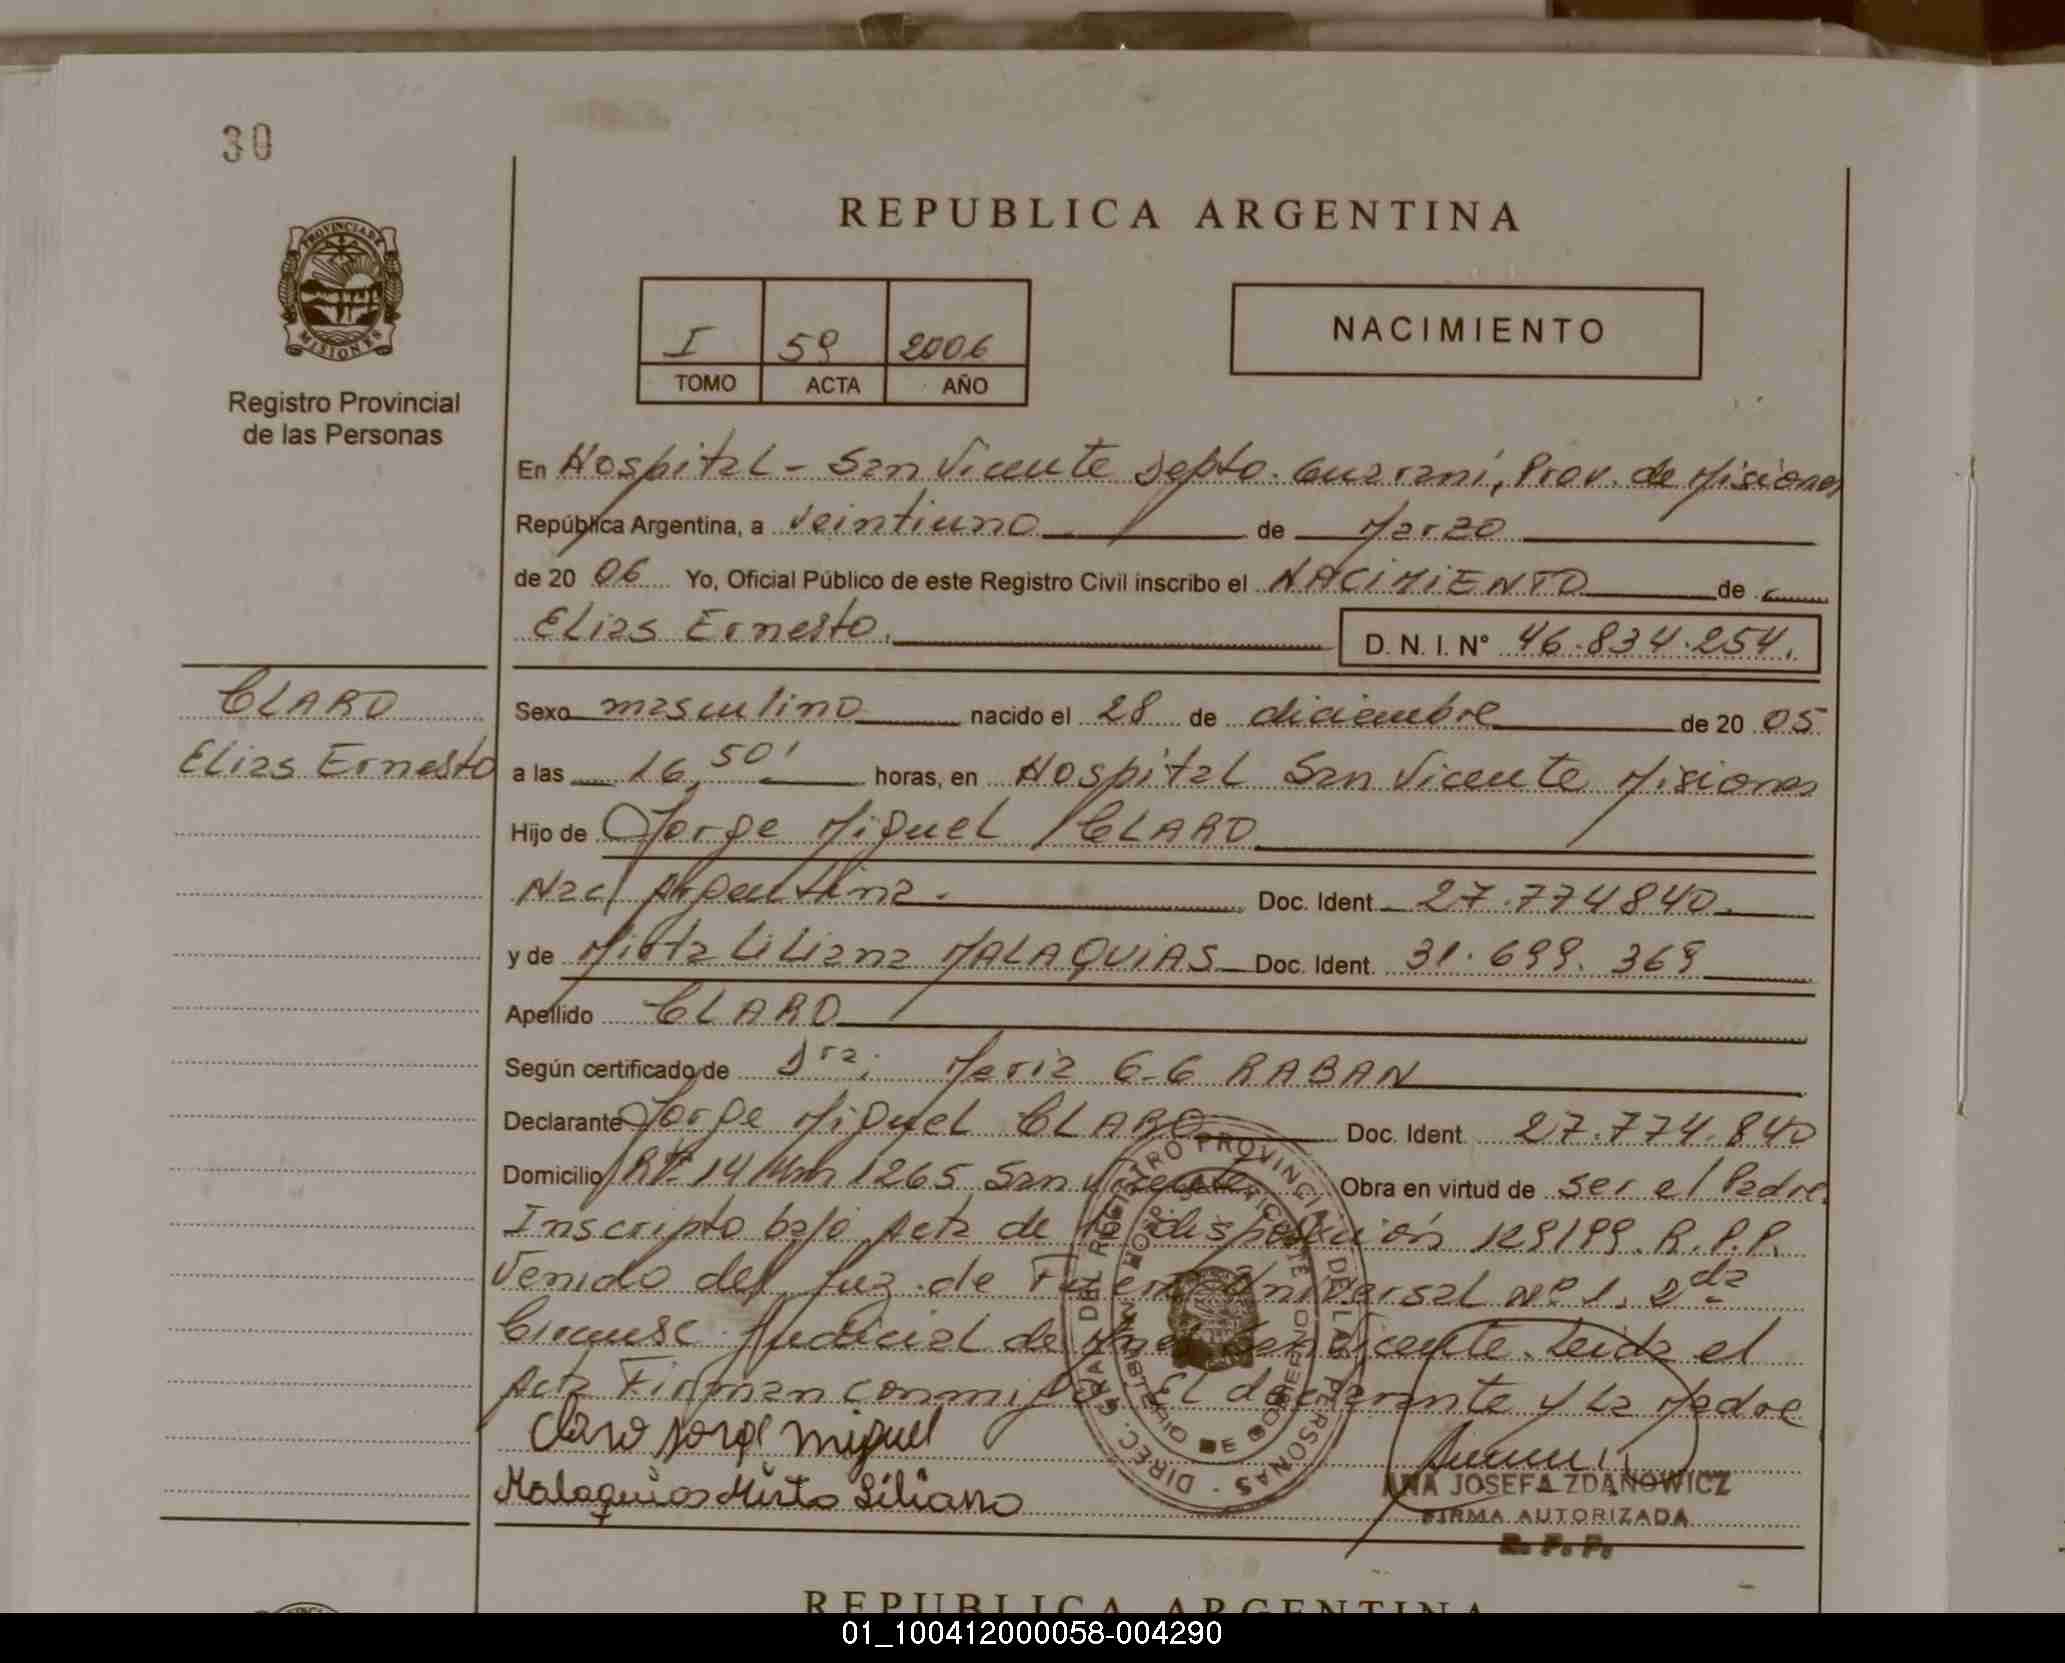 30
REPUBLICA ARGENTINA
PROVINCIA DE
MISIONES
Registro Provincial
de las Personas
I 59 2006
TOMO ACTA AÑO
NACIMIENTO
En Hospital - San Vicente Depto. Guaraní, Prov. de Misiones
República Argentina, a veintiuno de Marzo
de 20 06 Yo, Oficial Público de este Registro Civil inscribo el NACIMIENTO de
Elias Ernesto. D. N. I. N° 46.834.254.
CLARO
Elias Ernesto
Sexo masculino nacido el 28 de diciembre de 20 05
a las 16,50' horas, en Hospital San Vicente Misiones
Hijo de Jorge Miguel CLARO
Nac Argentina. Doc. Ident 27.774840.
y de Mirta Liliana MALAQUIAS Doc. Ident. 31.699.369
Apellido CLARO
Según certificado de Dra. Maria G-G RABAN
Declarante Jorge Miguel CLARO Doc. Ident 27.774.840
Domicilio Rta 14 Km 1265 San Vicente Obra en virtud de ser el Padre.
Inscripto bajo Acta de disposición 129199. R.P.P.
Venido del Juz. de Universal Nº 1. 2da
Circunsc. Judicial de San Vicente. Leida el
Acta Firman conmigo El declarante y La Madre
Claro Jorge Miguel
Malaquias Mirta Liliana
DIREC. GRAL. DEL REGISTRO PROVINCIAL DE LAS PERSONAS
HOSP. SAN VICENTE
MINISTERIO DE GOBIERNO
ANA JOSEFA ZDANOWICZ
FIRMA AUTORIZADA
R. P. P.
REPUBLICA ARGENTINA
01_100412000058-004290